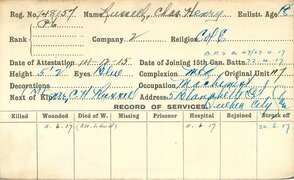 Reg. No. 748157 Name Russell, Chas Henry Enlistt. Age
Rank Pte Company 2 Religion C of E
Date of Attestation 14-12-15 Date of Joining 15th Can. Battn 22-4-17
Height 5'2 Eyes Blue Complexion Med Original Unit 117
Decorations Occupation Machinist
Next of Kin Mrs C H Russell Address
Quebec City
RECORD OF SERVICES
Killed Wounded Died of W. Missing Prisoner Hospital Rejoined Struck off
11.6.17 11.6.17 20.6.17